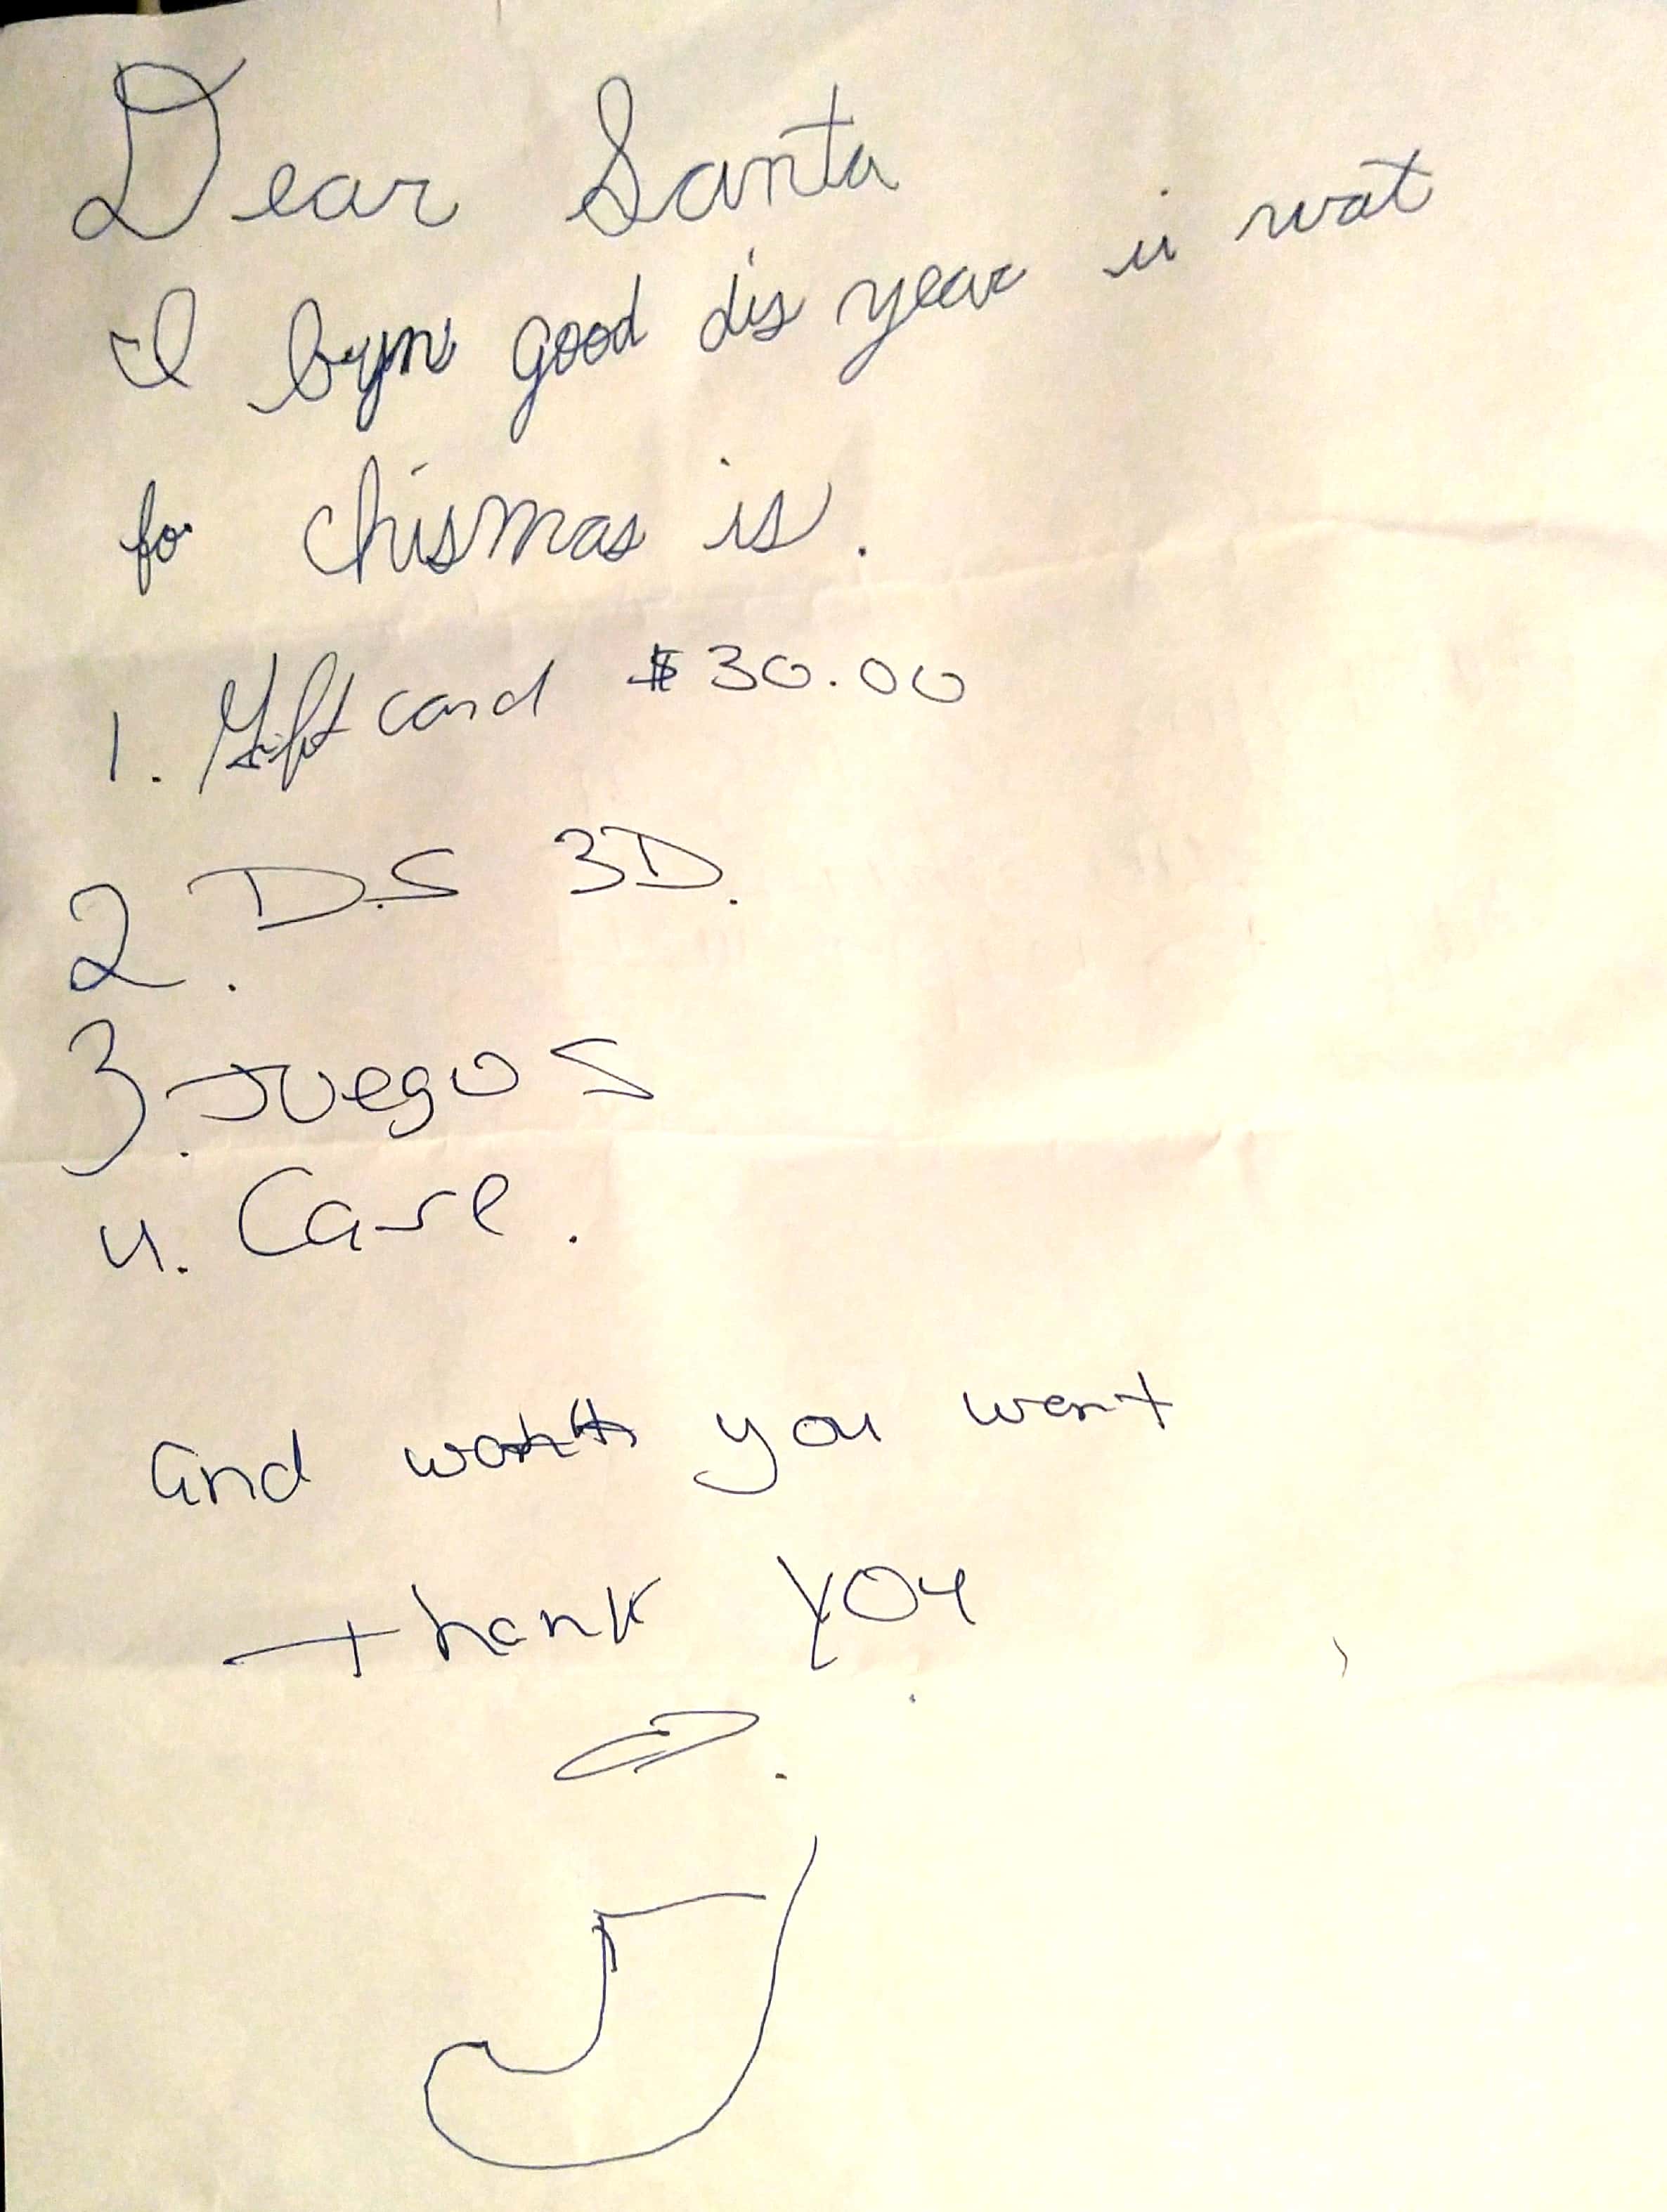 Dear Santa
I byn good dis year ii wat
for chismas is.
1. Gift card $30.00
2. D.S 3D.
3. Juegos
4. Case.
and you want
thank you
J